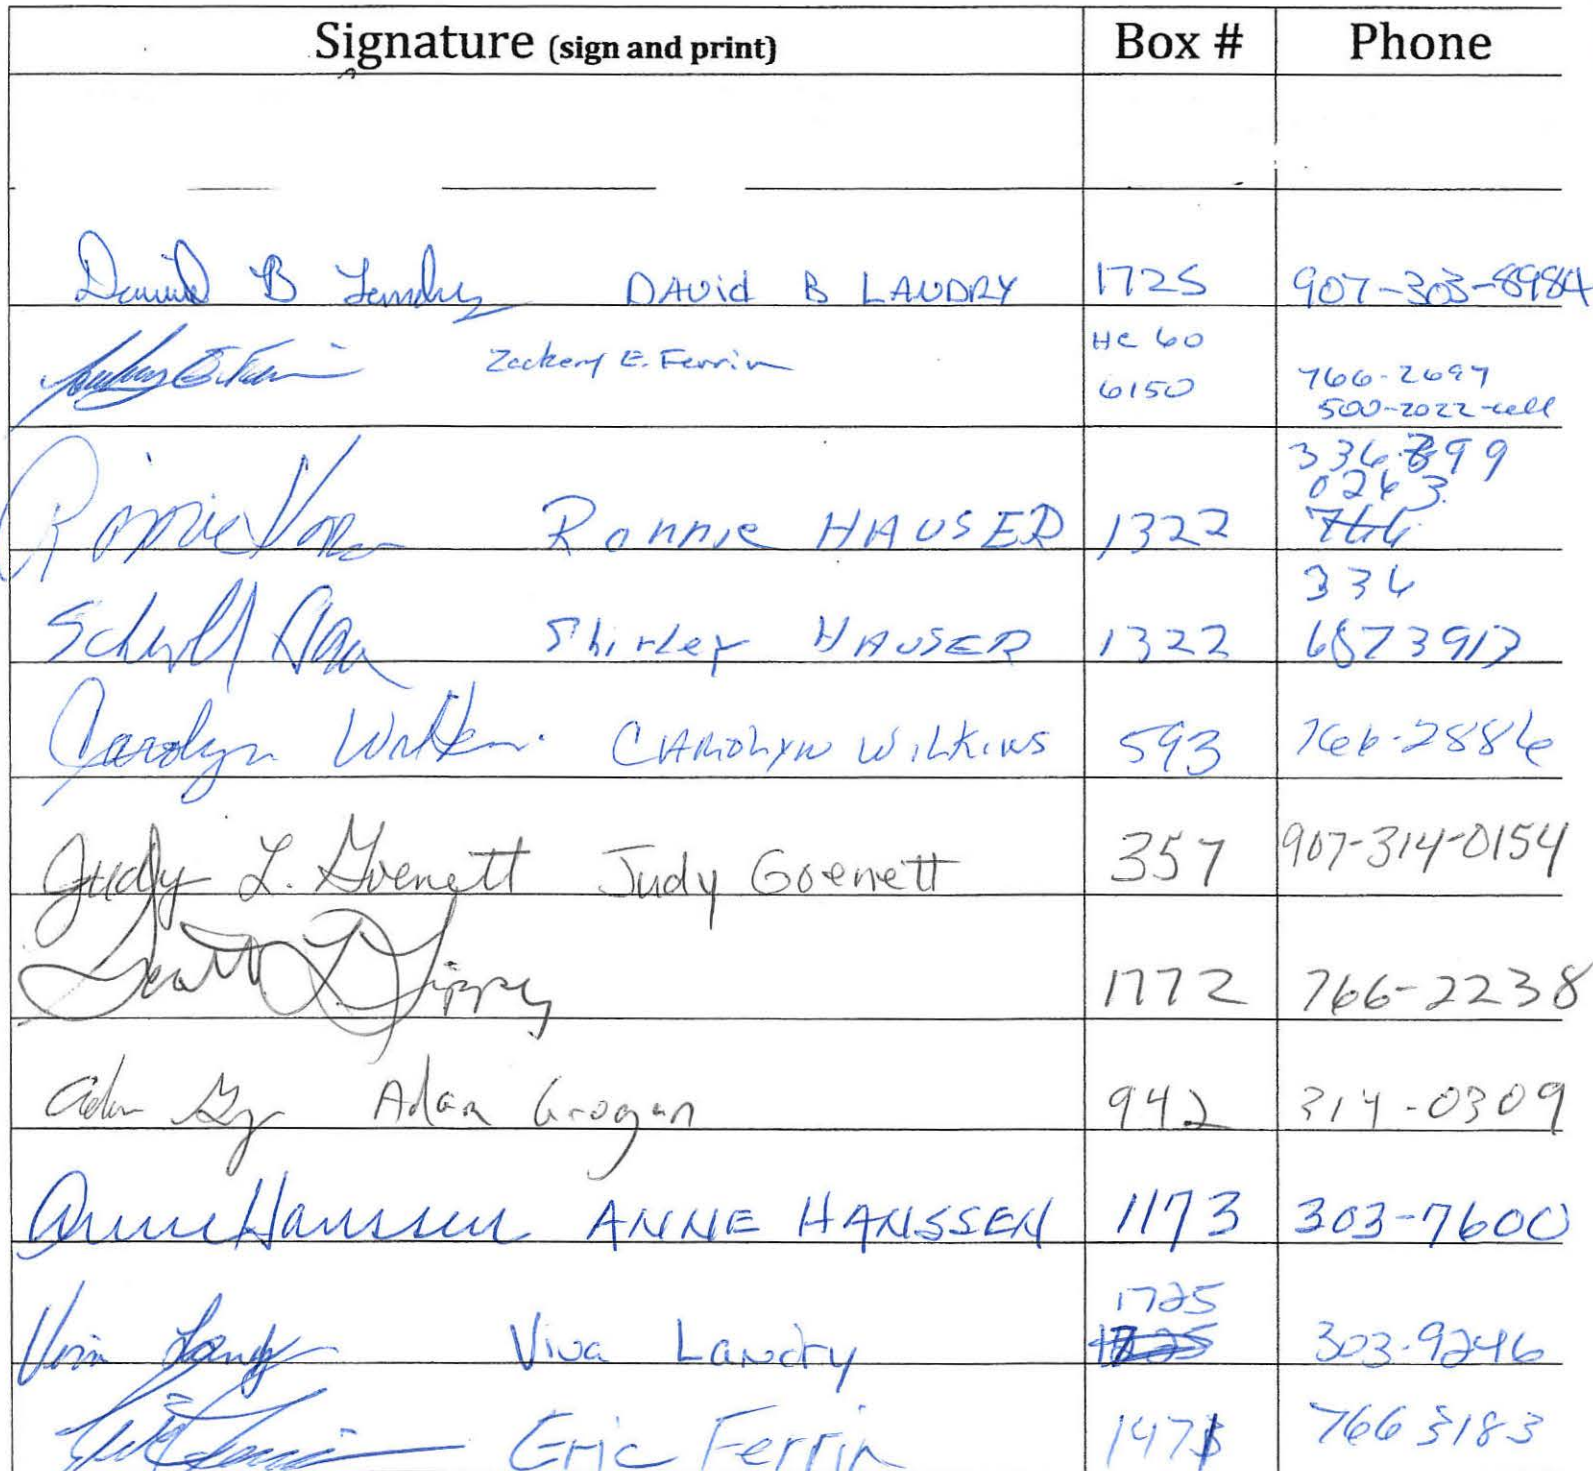 Signature (sign and print) Box # Phone
David B Landry DAVid B LANDRY 1725 907-303-8984
Zackery E. Ferrin HC 60 6150 766-2697 500-2022-cell
Ronnie Ronnie HAUSER 1322 336-899 0263 766
Shirley HAUSER 1322 336 6573913
Carolyn Wilkins CAROLYN WILKINS 593 766-2886
Judy L. Goenett Judy Goenett 357 907-314-0154
Scott D. Tippey 1772 766-2238
Adam Grogan 942 314-0309
Anne Hanssen ANNE HANSSEN 1173 303-7600
Viva Landry Viva Landry 1725 303-9246
Eric Ferrin 766 3183